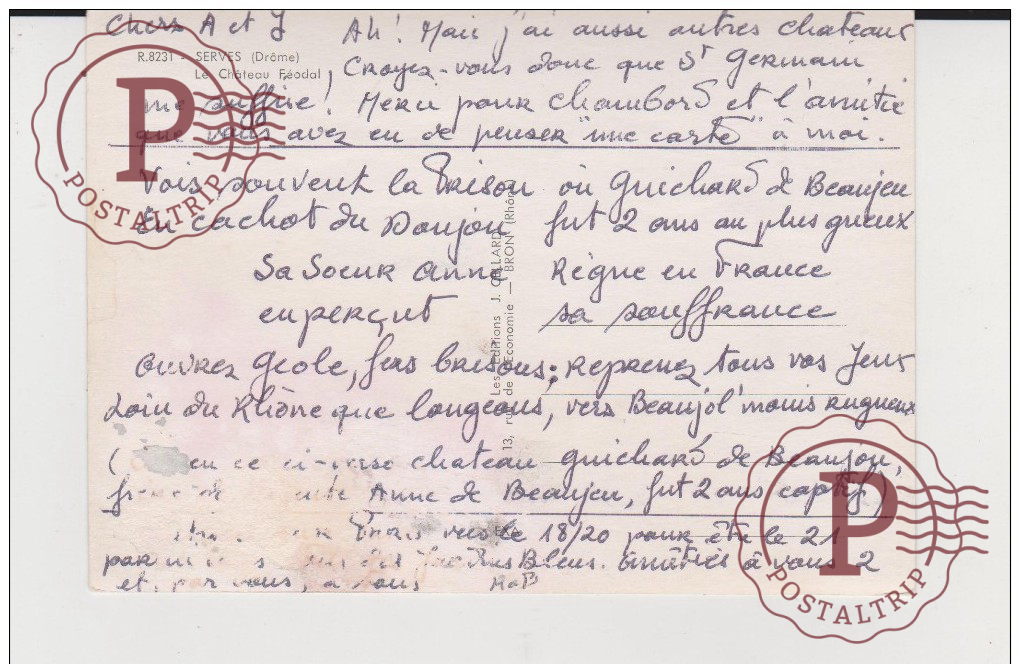 Chers A et J Ah! Mais j'ai aussi autres chateaux
R.8231 - SERVES (Drôme)
Le Château Féodal
, Croyez-vous donc que St Germain
me suffise! Merci pour Chambord et l'amitié
que vous avez eu de penser "une carte" à moi.
Vois souvent la Prison où Guichard de Beaujeu
En cachot du Donjon fut 2 ans au plus gneux
Sa Soeur Anne Règne en France
en perçut sa souffrance
Ouvrez Geole, fers brisons; Reprenez tous vos Jeux
Loin du Rhône que longeons, vers Beaujol' moins rugueux
( en ce ci-verso chateau Guichard de Beaujou,
Anne de Beaujeu, fut 2 ans captif)
vers le 18/20 pour être le 21
Bleus. Amitiés à vous 2
et, par vous, à vous MaB
13, rue de l'Economie — BRON (Rhône)
Les Editions J. CELLARD
POSTALTRIP
P
POSTALTRIP
P